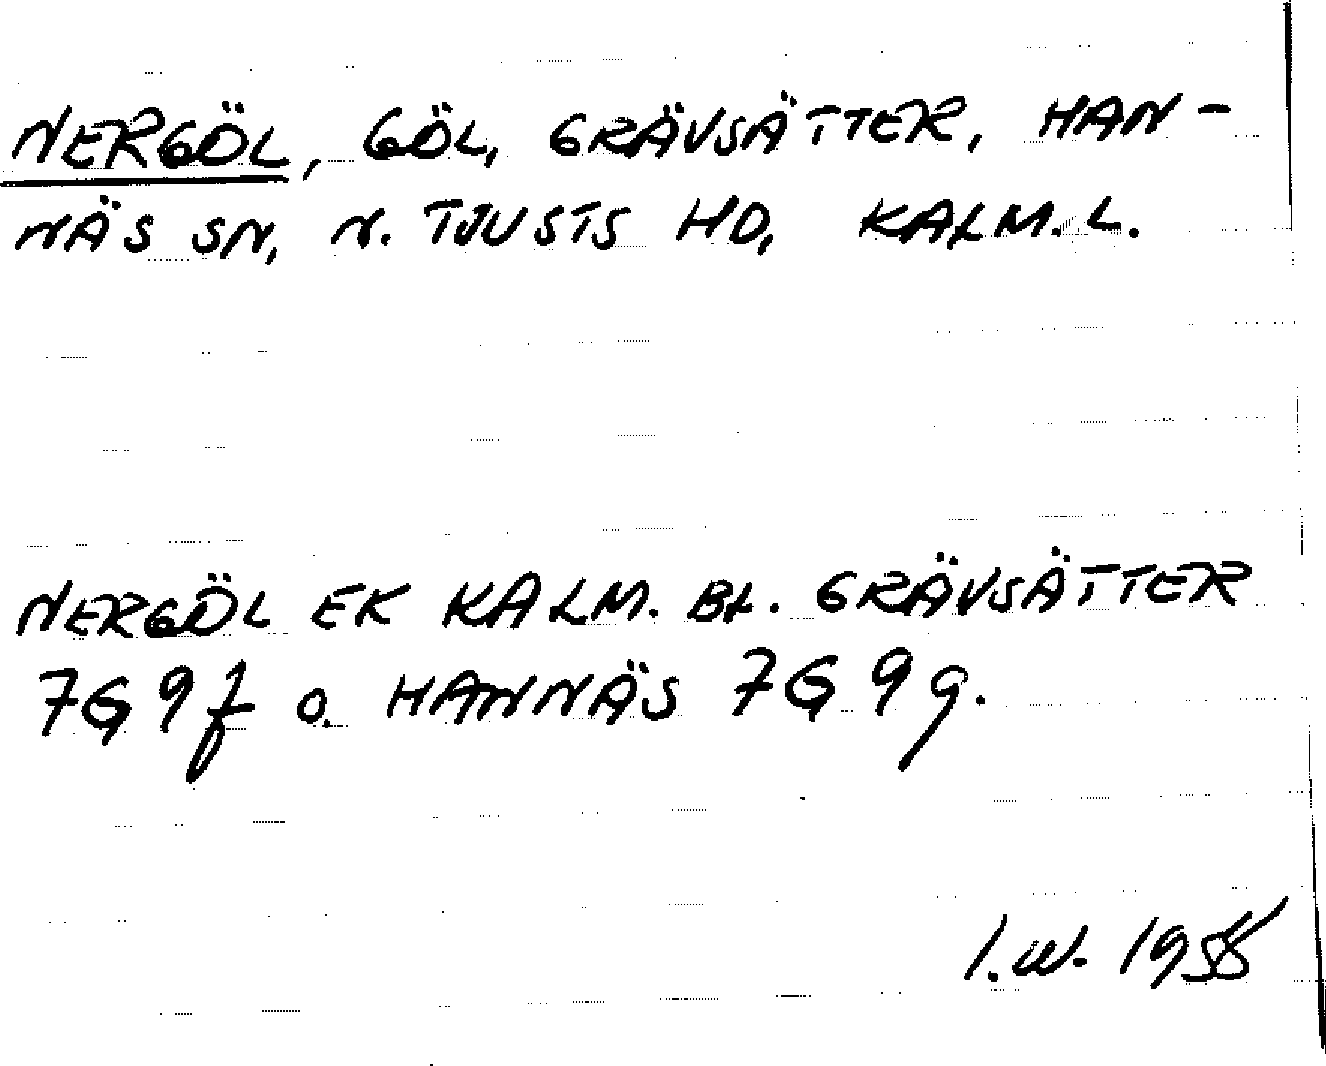 NERGÖL, GÖL, GRÄVSÄTTER, HAN-
NÄS SN, N. TJUSTS HD, KALM. L.
NERGÖL EK KALM. BL. GRÄVSÄTTER
7G 9f o. HANNÄS 7G 9g.
I.W. 1958